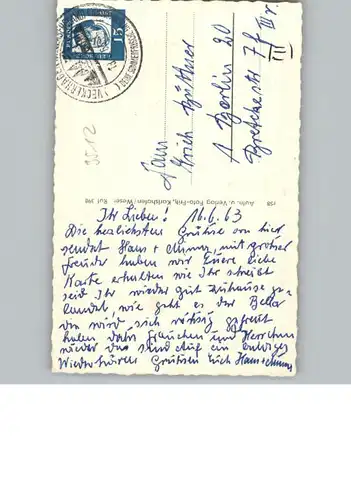 15
VECKERHAGEN
Fam
Erich Büttner
1 Berlin 20
Brötzestr 7f
III
3512
158 Aufn. u. Verlag Foto-Fritz, Karlshafen/Weser Ruf 398
Ihr Lieben! 16.6.63
Die herzlichsten Grüße von hier
sendet Hans + , mit großer
Freude haben wir Eure liebe
Karte erhalten wie Ihr schreibt
seid Ihr wieder gut zuhause ge-
landet, wie geht es der Bella
die wird sich richtig gefreut
haben daß Frauchen und Herrchen
wieder da sind Auf ein baldiges
Wiederhören Grüßen Euch Hans +